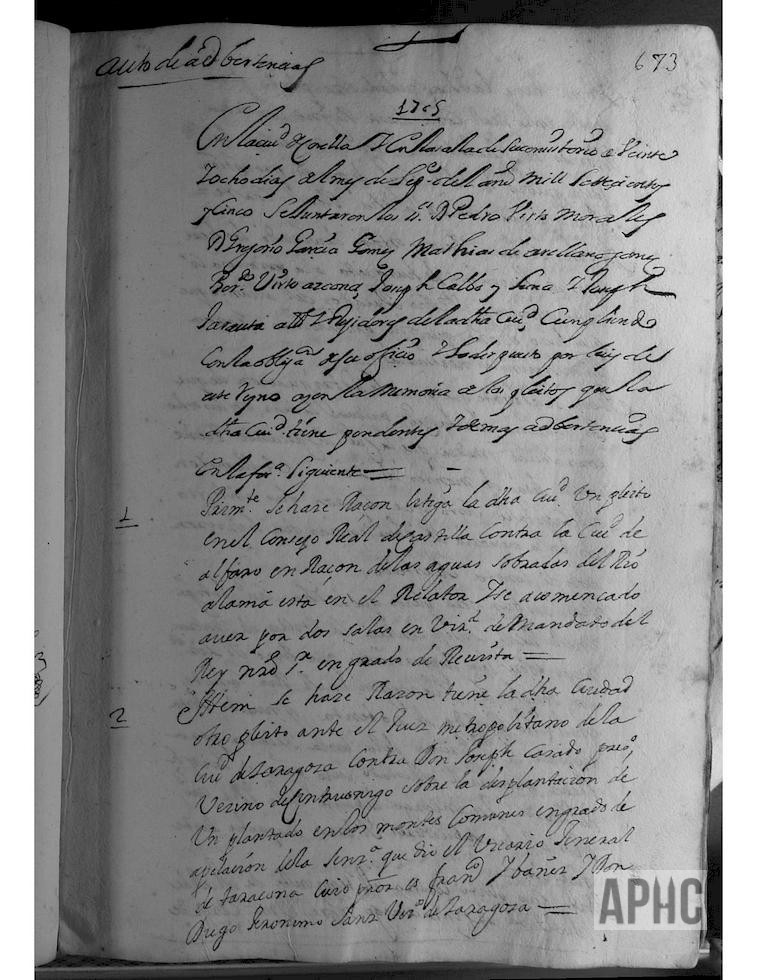 auto de adbertencias
673
1705
En la ciud de Corella Y En la sala de su consistorio a Veinte
Y ocho dias del mes de Sep.e del año mill Settecientos
y Cinco Se Juntaron los S.s D Pedro Virto Morales
D Gregorio Garcia Gomez Mathias de arellano gomez
Ber.do Virto azcona, Joseph Calbo y Sena Y Joseph
alld Y Rejidores de la dha Ciud, Cumpliendo
Con la oblig.on de su officio Y lo dispuesto por leies de
este Reyno acen la Memoria de los pleitos que la
dha Ciud. tiene pendentes Y demas adbertencias
En la for.a Siguiente
1
Prim.te se hace Raçon litiga la dha Ciu.d Un pleito
en el Consejo Real de Castilla Contra la Ciu.d de
alfaro en Raçon de las aguas sobradas del Rio
alama esta en el Relator Y se a comencado
a ver por dos salas en Vir.d de Mandato del
Rey nro S.r en grado de Revista
2
Ittem se hace Razon tiene la dha Ciudad
otro pleito ante el Juez metropolitano de la
Ciu.d de Zaragoza Contra Don Joseph Casado presº,
Vecino de Cintruenigo sobre la desplantacion de
Un plantado en los montes Comunes en grado de
apelacion de la Sen.a que dio el Vicario General
de Tarazona Cuio pror es Fran.co Ybañez Y Don
Diego Geronimo Sanz Vez.o de Zaragoza
APHC